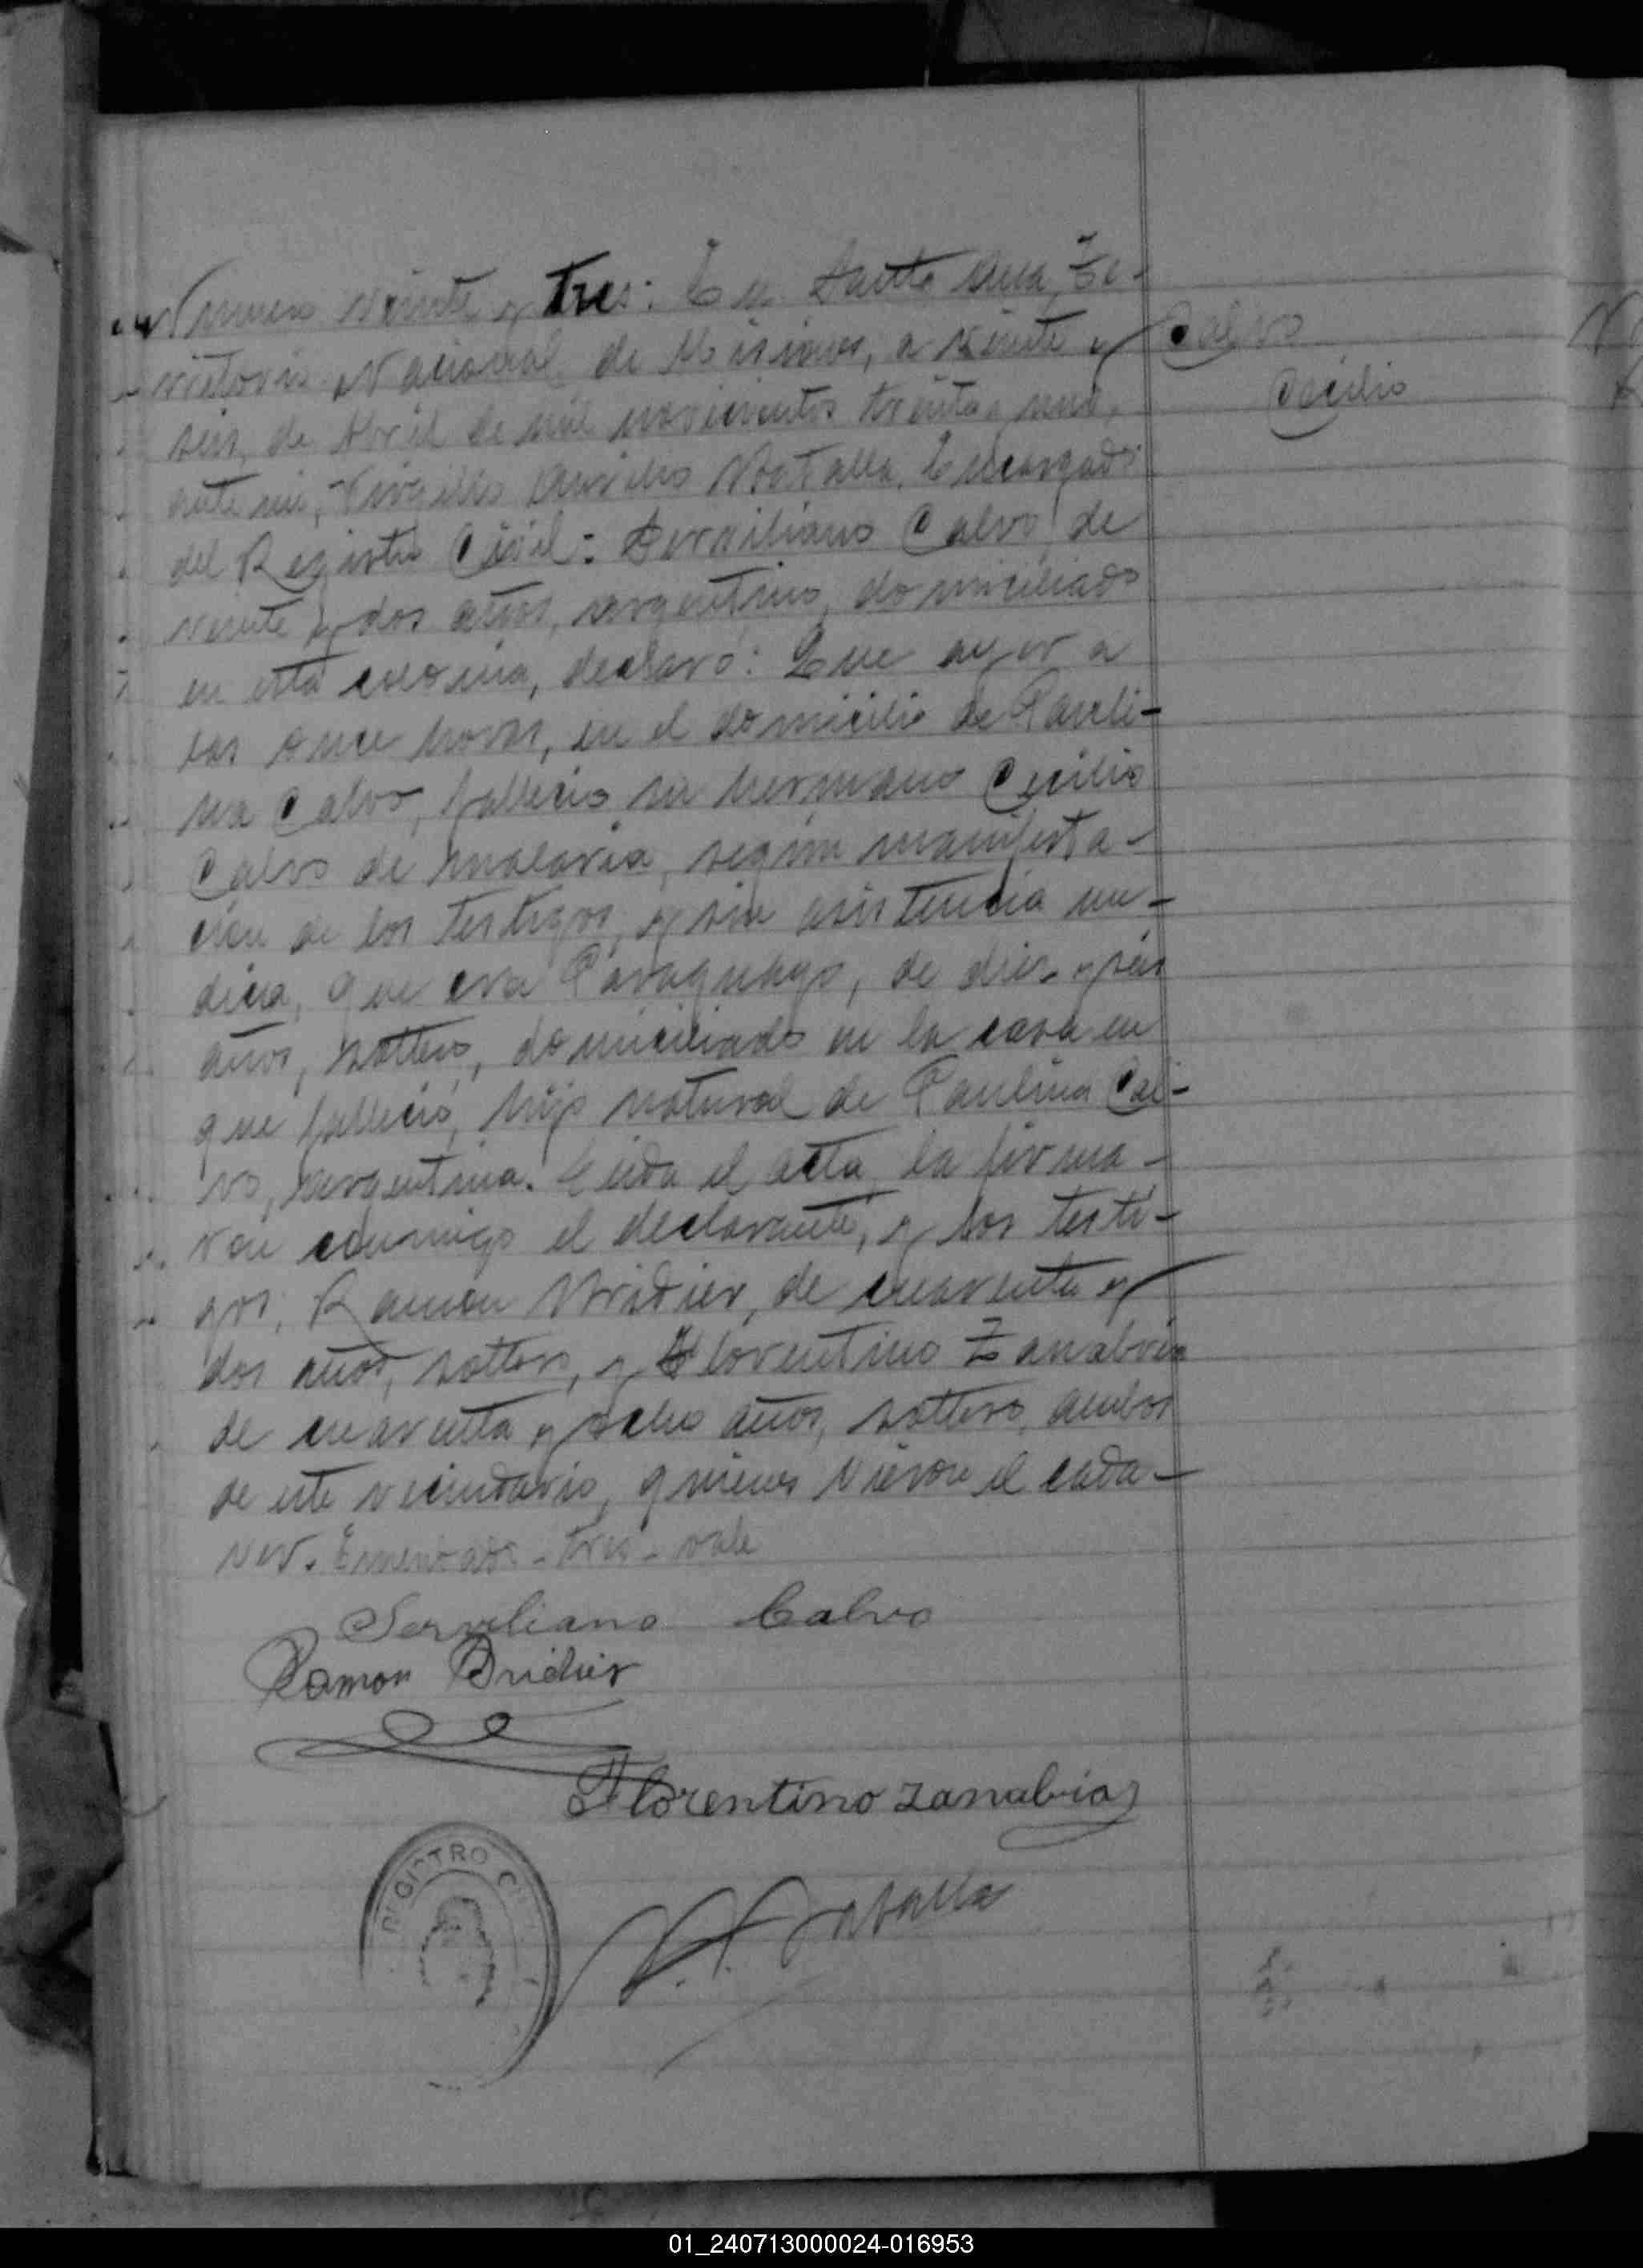 Numero veinte y tres: En Santa Ana, Te-
rritorio Nacional de Misiones, a veinte y
seis, de Abril de mil novecientos treinta y uno,
ante mi, Virgilio Encargado
del Registro Civil: Serviliano Calvo, de
veinte y dos años, argentino, domiciliado
en esta colonia, declaró: Que ayer a
las once horas, en el domicilio de Pauli-
na Calvo, fallecio su hermano Cecilio
Calvo de malaria, según manifesta-
cion de los testigos, y sin asistencia me-
dica, que era Paraguayo, de diez y seis
años, soltero, domiciliado en la casa en
que fallecio, hijo natural de Paulina Cal-
vo, argentina. Leida el acta, la firma-
ron conmigo el declarante, y los testi-
gos, Ramon Bridier, de cuarenta y
dos años, soltero, y Florentino Zanabria
de cuarenta y ocho años, soltero, ambos
de este vecindario, quienes vieron el cada-
ver. Enmendado - tres - vale
Calvo
Cecilio
Serviliano Calvo
Ramon Bridier
Florentino Zanabria
REGISTRO
01_240713000024-016953